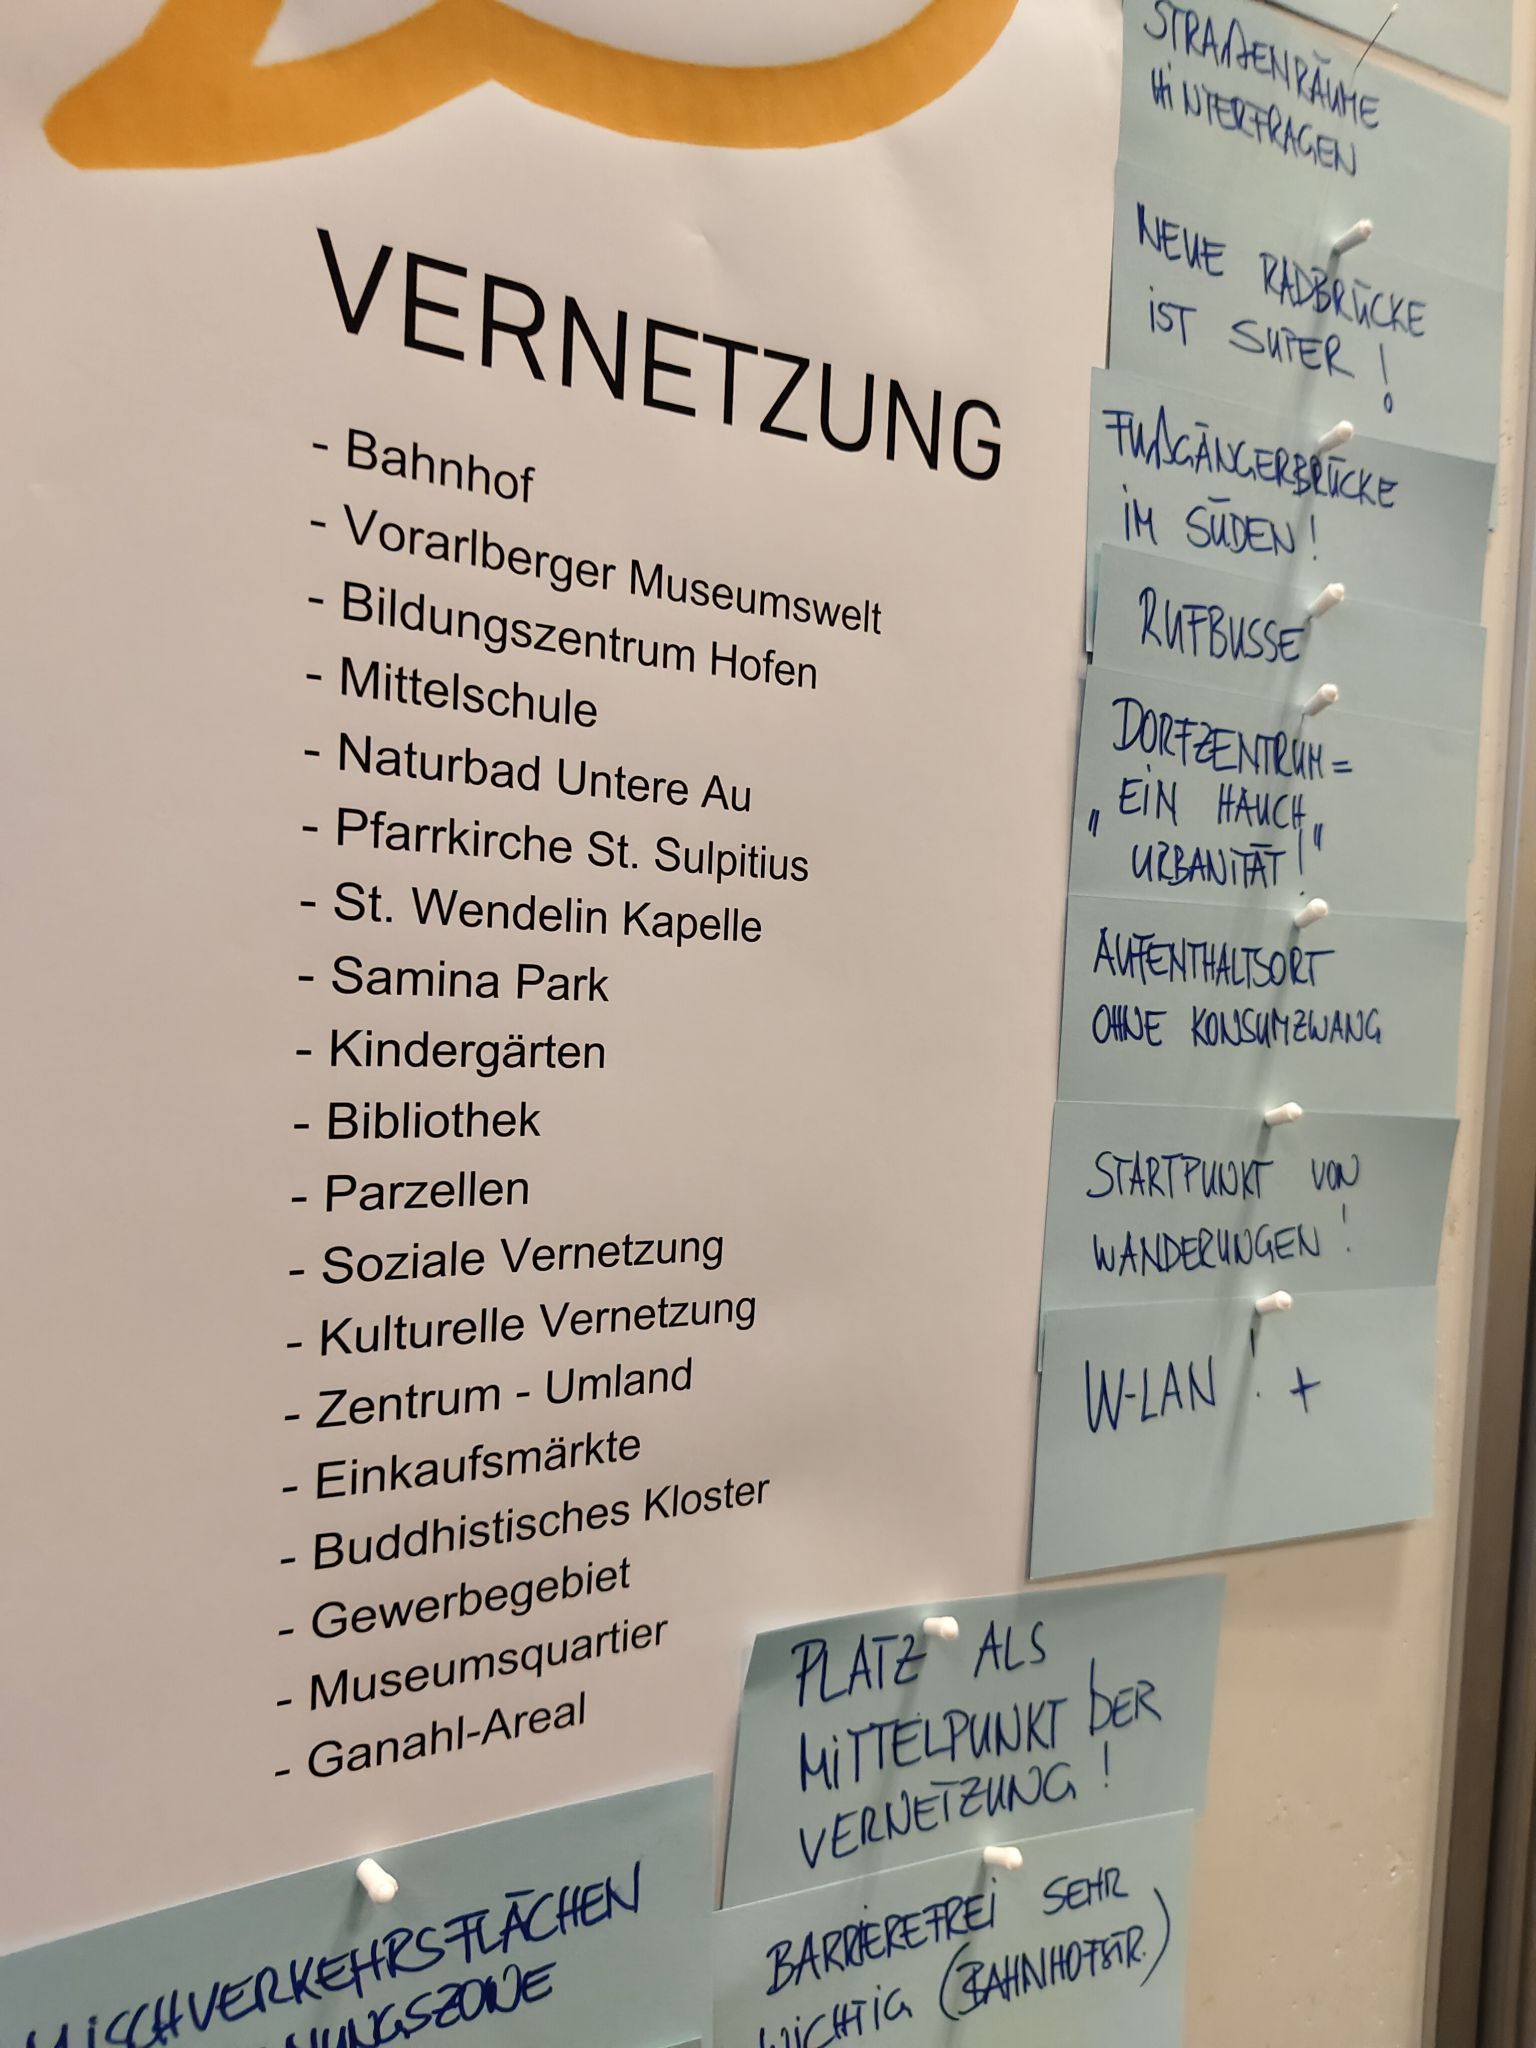 VERNETZUNG
- Bahnhof
- Vorarlberger Museumswelt
- Bildungszentrum Hofen
- Mittelschule
- Naturbad Untere Au
- Pfarrkirche St. Sulpitius
- St. Wendelin Kapelle
- Samina Park
- Kindergärten
- Bibliothek
- Parzellen
- Soziale Vernetzung
- Kulturelle Vernetzung
- Zentrum - Umland
- Einkaufsmärkte
- Buddhistisches Kloster
- Gewerbegebiet
- Museumsquartier
- Ganahl-Areal
STRAßENRÄUME
HINTERFRAGEN
NEUE RADBRÜCKE
IST SUPER!
FUßGÄNGERBRÜCKE
IM SÜDEN!
RUFBUSSE
DORFZENTRUM =
„EIN HAUCH
URBANITÄT!"
AUFENTHALTSORT
OHNE KONSUMZWANG
STARTPUNKT VON
WANDERUNGEN!
W-LAN! +
PLATZ ALS
MITTELPUNKT DER
VERNETZUNG!
BARRIEREFREI SEHR
WICHTIG (BAHNHOFSTR.)
MISCHVERKEHRSFLÄCHEN